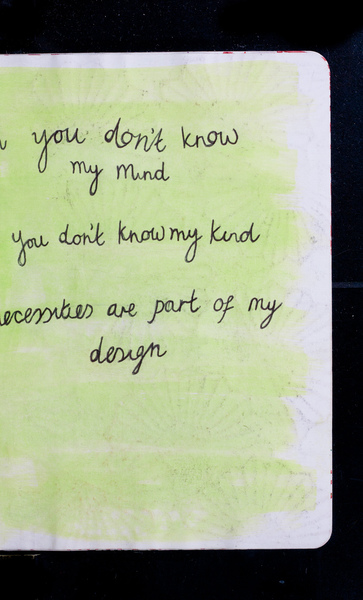 you don't know
my mind
you don't know my kind
necessities are part of my
design